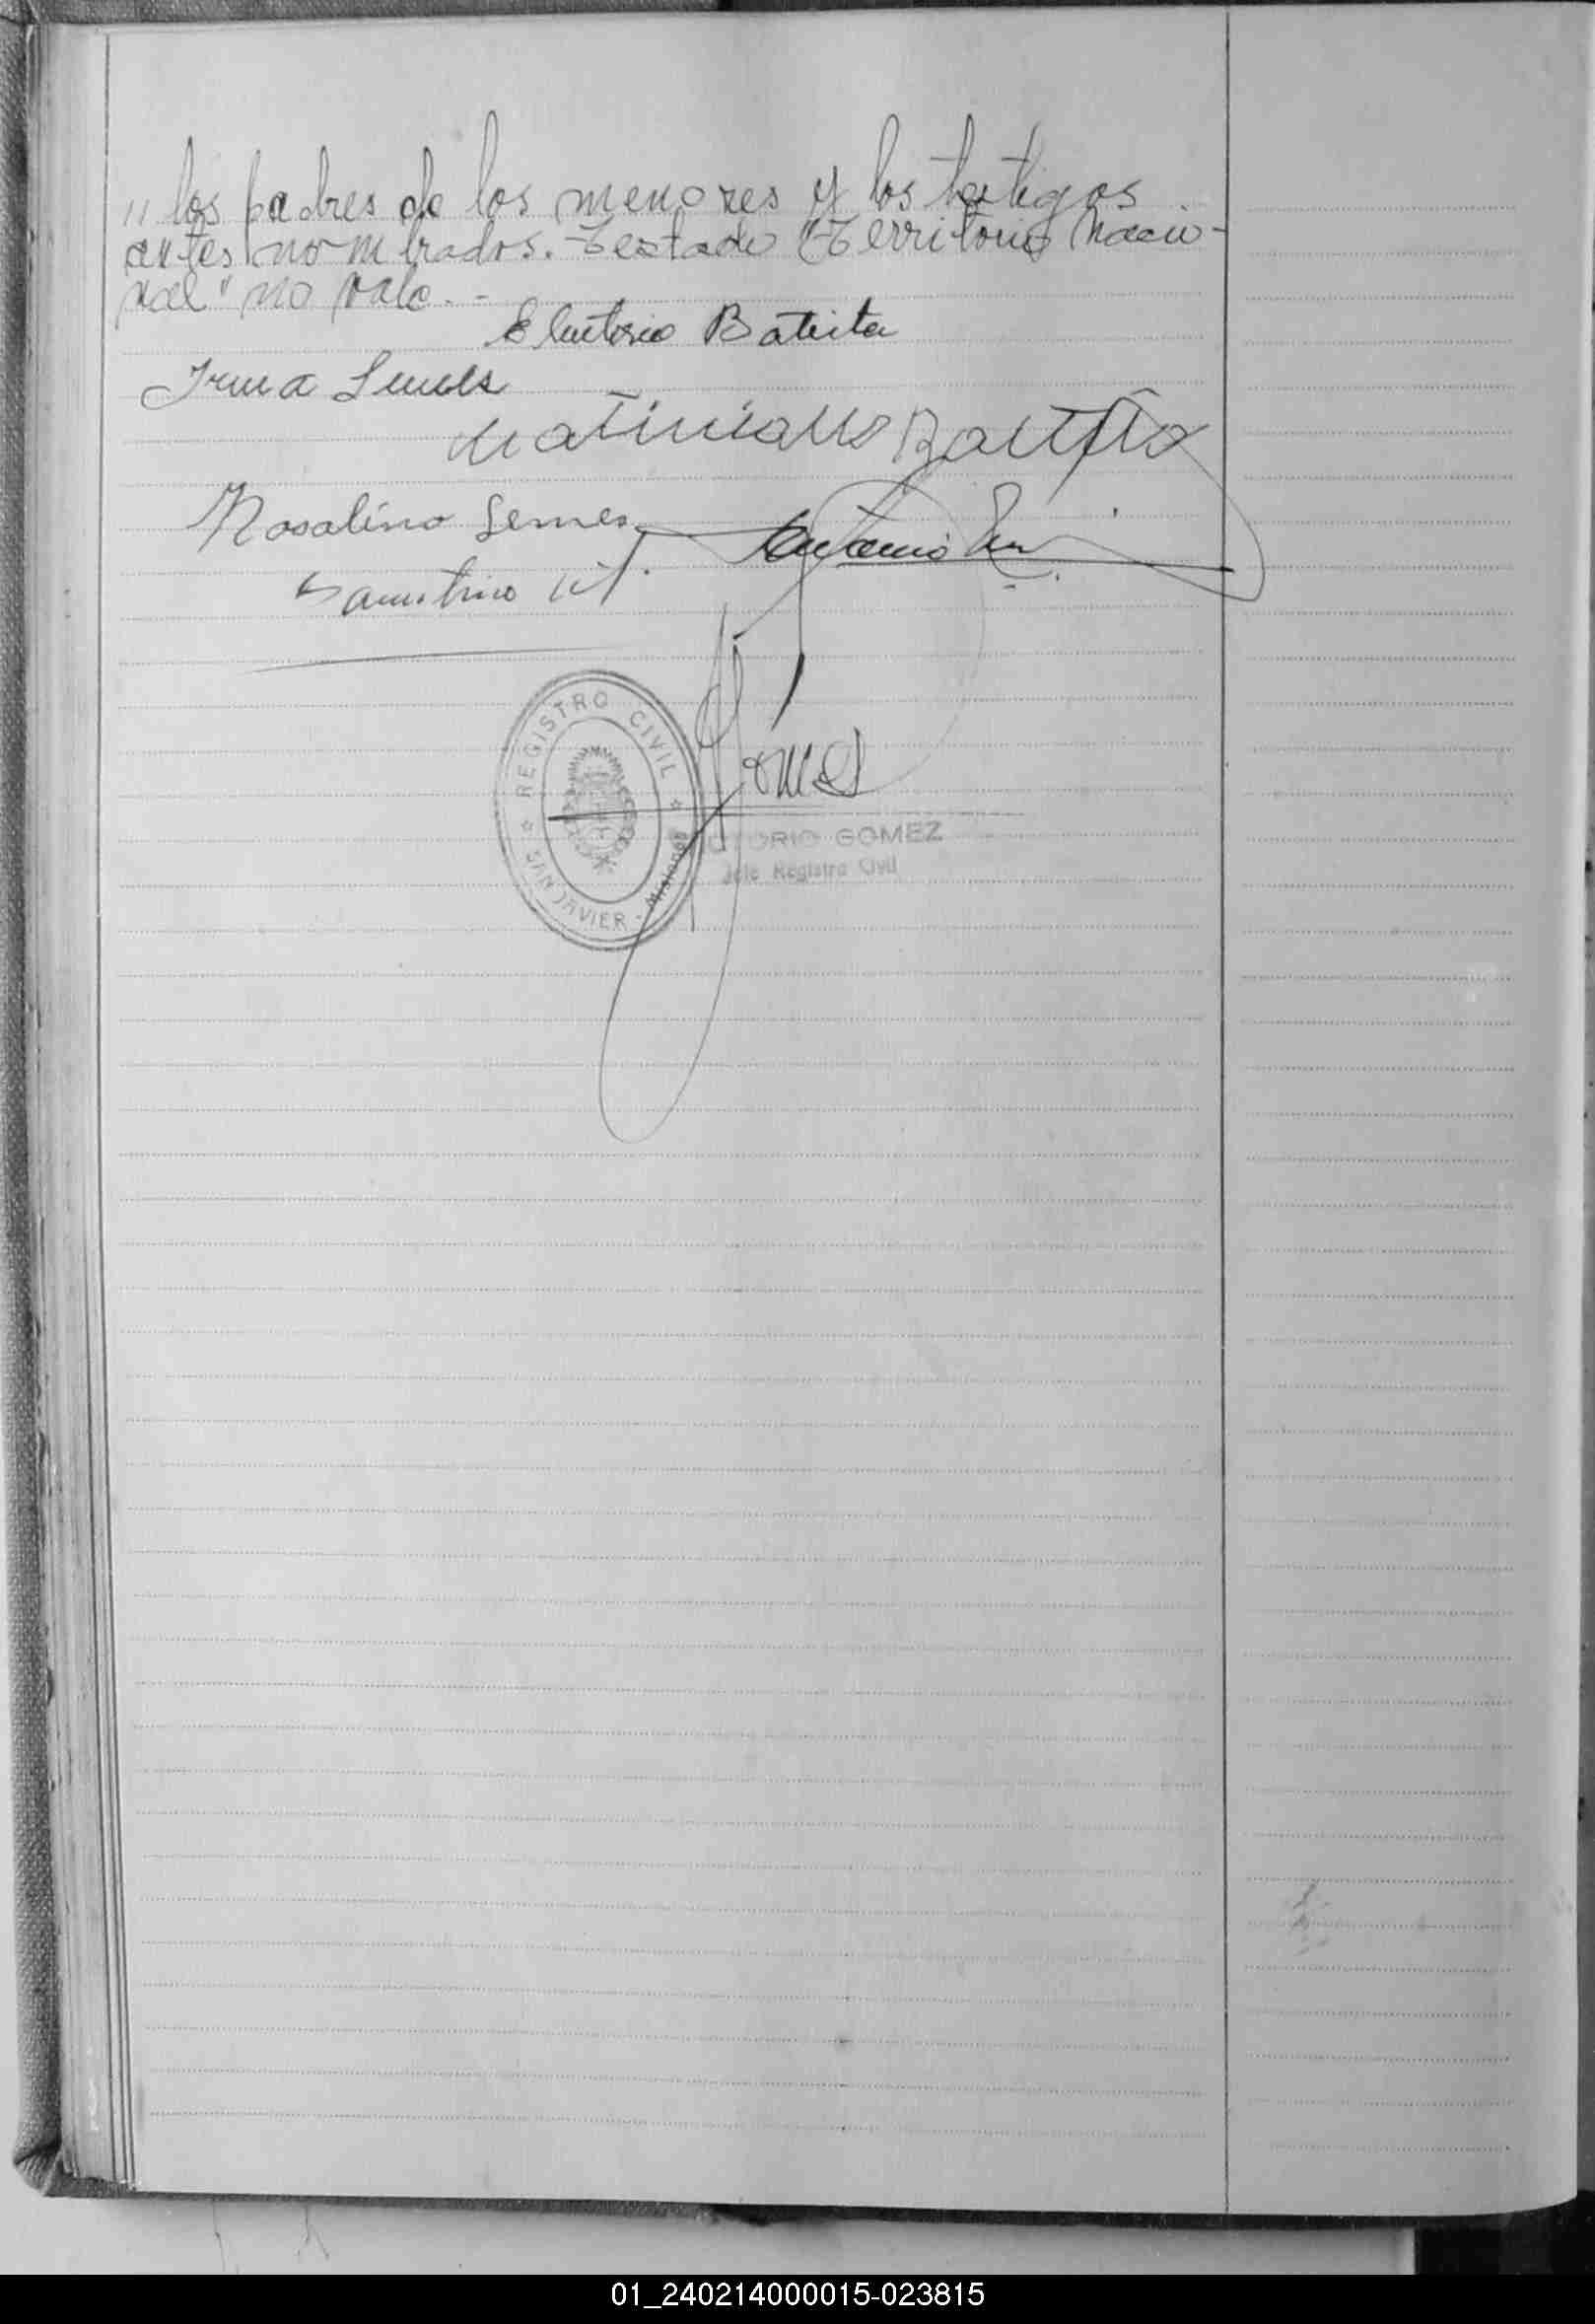 "los padres de los menores y los testigos
antes nombrados.-Testado "Territorio Nacio-
nal" no vale.-
Eleuterio Batista
Irma Lemes
Batista
Rosalino Lemes
Antonio
Gomes
REGISTRO CIVIL
SAN JAVIER - Misiones
GOMEZ
Jefe Registro Civil
01_240214000015-023815